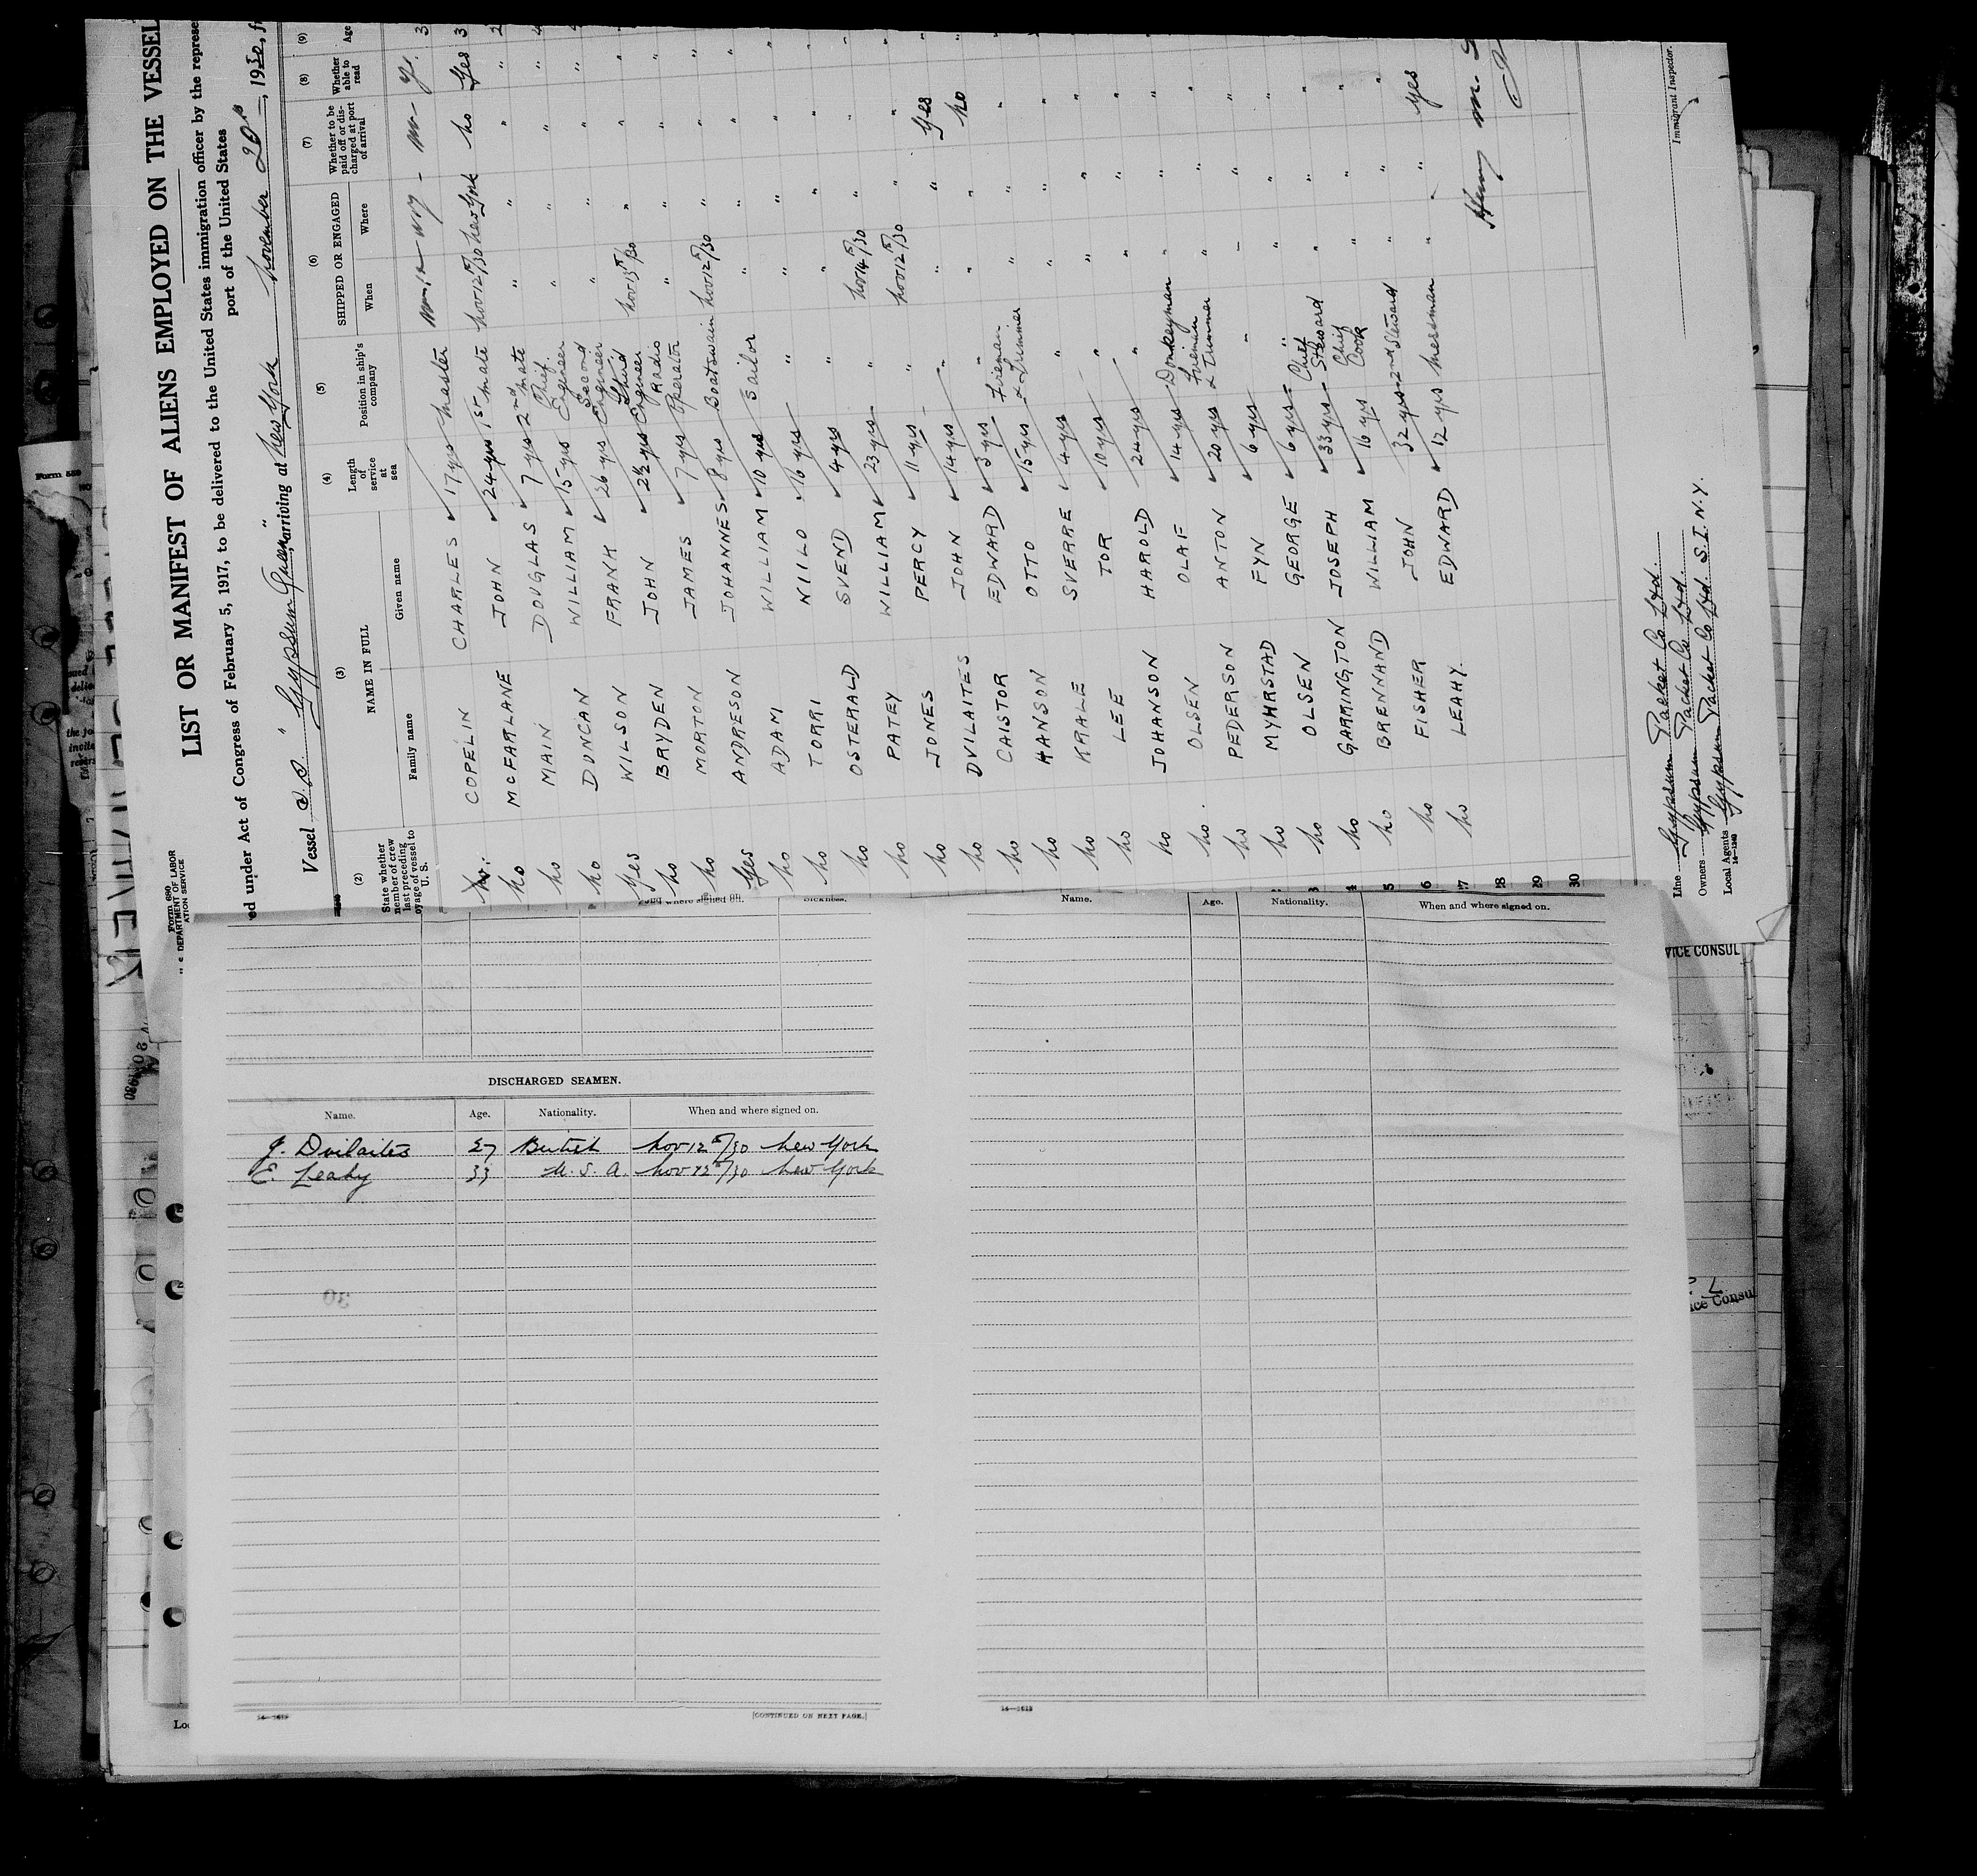 Form 680
U. S. DEPARTMENT OF LABOR
LIST OR MANIFEST OF ALIENS EMPLOYED ON THE VESSEL
ed under Act of Congress of February 5, 1917, to be delivered to the United States immigration officer by the represe
port of the United States
Vessel S.S. "Gypsum Queen", arriving at New York November 20th, 1930, f
(2) (3) (4) (5) (6) (7) (8) (9)
State whether member of crew last preceding voyage of vessel to U. S.
NAME IN FULL
Family name Given name
Length of service at sea
Position in ship's company
SHIPPED OR ENGAGED
When Where
Whether to be paid off or discharged at port of arrival
Whether able to read
Age
no. COPELIN CHARLES 17 yrs Master Nov 12th/30 New York no Yes 3
no McFARLANE JOHN 24 yrs 1st Mate " " " "
no MAIN DOUGLAS 7 yrs 2nd Mate " " " "
no DUNCAN WILLIAM 15 yrs Chief Engineer " " " "
Yes WILSON FRANK 26 yrs Second Engineer Nov 13th/30 " " "
no BRYDEN JOHN 2½ yrs Third Engineer " " " "
no MORTON JAMES 7 yrs Radio Operator Nov 12th/30 " " "
Yes ANDRESON JOHANNES 8 yrs Boatswain " " " "
no ADAM WILLIAM 10 yrs Sailor " " " "
no TORRI NIILO 16 yrs " " " " "
no OSTERALD SVEND 4 yrs " Nov 14th/30 " " "
no PATEY WILLIAM 23 yrs " Nov 12th/30 " " "
no JONES PERCY 11 yrs " " " "
no DVILAITES JOHN 14 yrs " " " Yes "
no CAISTOR EDWARD 3 yrs Fireman & Trimmer " " no "
no HANSON OTTO 15 yrs " " " "
no KRALE SVERRE 4 yrs " " " " "
no LEE TOR 10 yrs " " " " "
no JOHANSON HAROLD 24 yrs " " " " "
no. OLSEN OLAF 14 yrs Donkeyman " " " "
no PEDERSON ANTON 20 yrs Fireman & Trimmer " " " "
no MYHRSTAD FYN 6 yrs " " " " "
no OLSEN GEORGE 6 yrs " " " " "
no GARRINGTON JOSEPH 33 yrs Chief Steward " " " "
no BRENNAND WILLIAM 16 yrs Chief Cook " " " "
no FISHER JOHN 32 yrs 2nd Steward " " "
no LEAHY EDWARD 12 yrs Messman " " " yes
28
29
30
Line Gypsum Packet Co Ltd.
Owners Gypsum Packet Co Ltd
Local Agents Gypsum Packet Co Ltd. S. I. N. Y.
14—1240
Immigrant Inspector.
Name. Age. Nationality. When and where signed on.
DISCHARGED SEAMEN.
Name. Age. Nationality. When and where signed on.
J. Dvilaites 27 British Nov 12th/30 New York
E. Leahy 33 U. S. A. Nov 12th/30 New York
[CONTINUED ON NEXT PAGE.]
VICE CONSUL
ice Consul